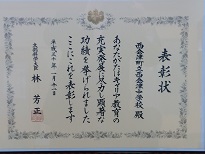 表彰状
西会津町立西会津中学校 殿
あなたがたはキャリア教育の
充実発展に尽力し顕著な
功績を挙げられました
ここにこれを表彰します
平成三十年一月十八日
文部科学大臣 林 芳正